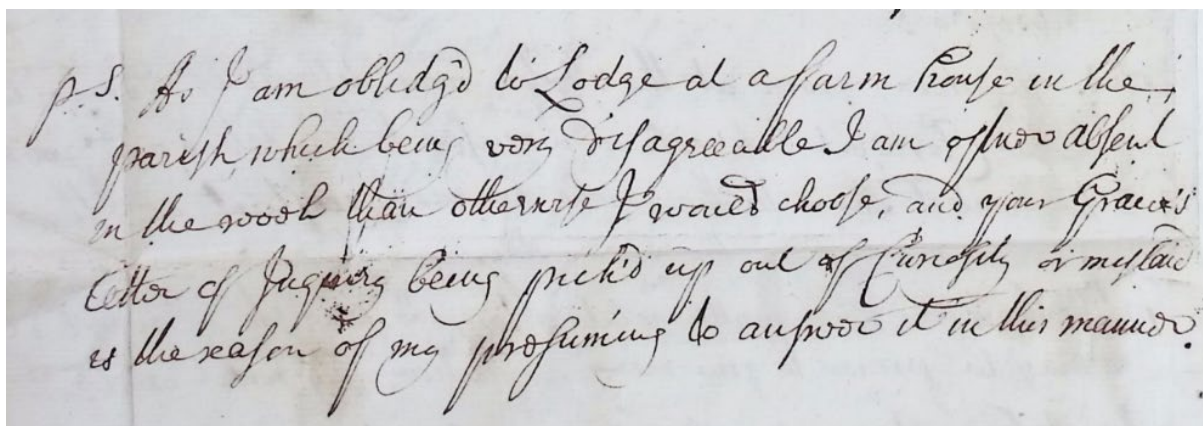 p.S. As I am oblidg'd to Lodge at a ffarm house in the
parish, which being very disagreeable I am oftner absent
in the week than otherwise I would choose, and your Grace's
Letter of Inquiry being pick'd up out of Curiosity or mislaid
is the reason of my presuming to answer it in this manner.